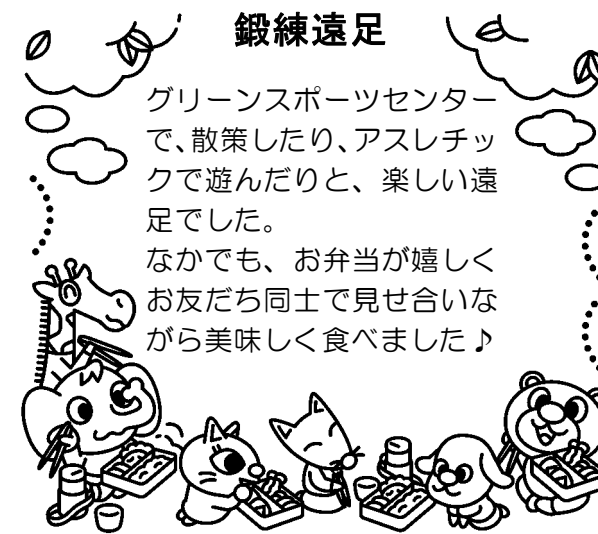 鍛練遠足
グリーンスポーツセンター
で、散策したり、アスレチッ
クで遊んだりと、楽しい遠
足でした。
なかでも、お弁当が嬉しく
お友だち同士で見せ合いな
がら美味しく食べました♪